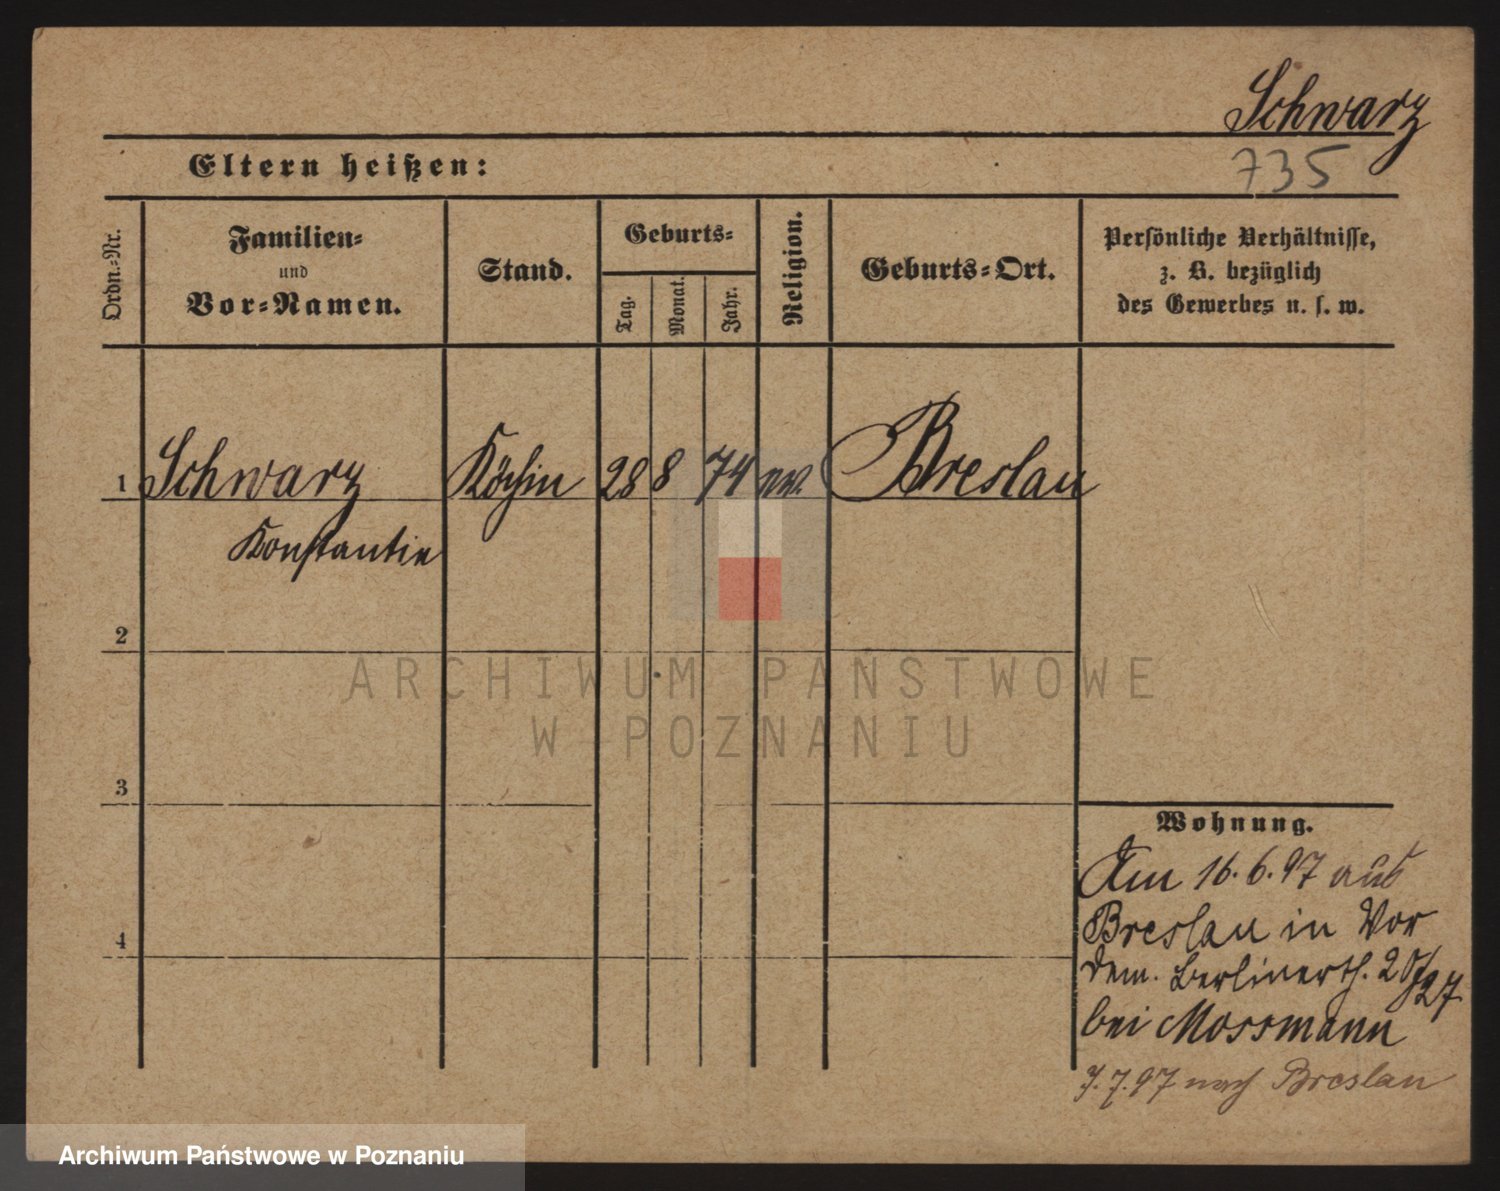 Schwarz
735
Eltern heißen:
Ordn.-Nr.
Familien-
und
Vor-Namen.
Stand.
Geburts-
Tag.
Monat.
Jahr.
Religion.
Geburts-Ort.
Persönliche Verhältnisse,
z. B. bezüglich
des Gewerbes u. s. w.
1 Schwarz Köchin 28 8 74 ev. Breslau
Konstantin
2
3
4
Wohnung.
Am 16.6.97 aus
Breslau in Vor
dem. Berlinerth.
bei Mossmann
7.97 nach Breslau
ARCHIWUM PAŃSTWOWE
W POZNANIU
Archiwum Państwowe w Poznaniu